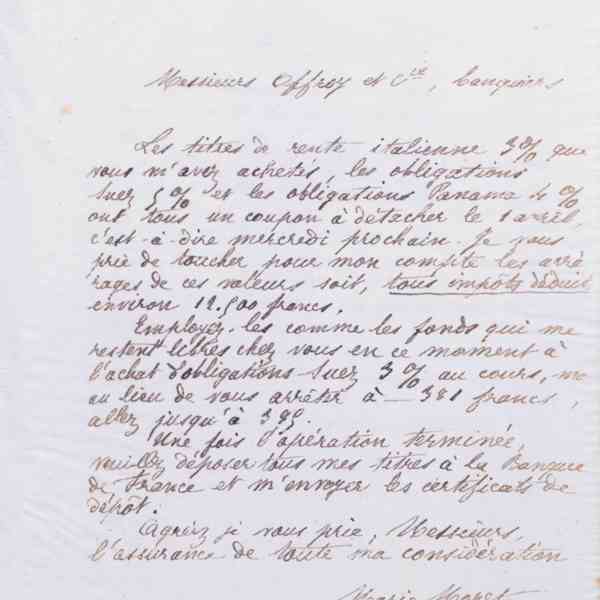 Messieurs Offroy et Cie, banquiers
Les titres de rente italienne 3% que
vous m'avez achetés, les obligations
Suez 5% et les obligations Panama 4%
ont tous un coupon à détacher le 1 avril,
c'est-à-dire mercredi prochain. Je vous
prie de toucher pour mon compte les arré
rages de ces valeurs soit, tous impôts déduits
environ 12.500 francs.
Employez-les comme les fonds qui me
restent libres chez vous en ce moment à
l'achat d'obligations Suez 3% au cours,
au lieu de vous arrêter à 381 francs,
allez jusqu'à 385.
Une fois l'opération terminée,
veuillez déposer tous mes titres à la Banque
de France et m'envoyer les certificats de
dépôt.
Agréez je vous prie, Messieurs,
l'assurance de toute ma considération